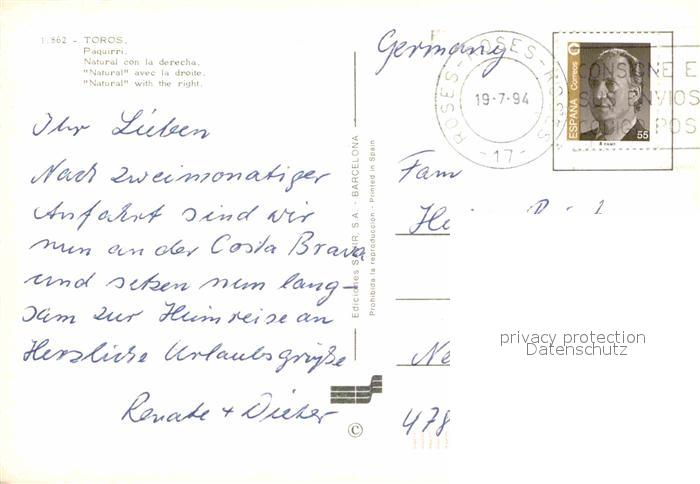 1.862 - TOROS.
Paquirri.
Natural con la derecha.
"Natural" avec la droite.
"Natural" with the right.
Ihr Lieben
Nach zweimonatiger
Anfahrt sind wir
nun an der Costa Brava
und setzen nun lang-
sam zur Heimreise an
Herzliche Urlaubsgrüße
Renate + Dieter
Ediciones S.A. - BARCELONA
Prohibida la reproducción - Printed in Spain
©
Germany
ROSES - ROSES - ROSES
19-7.94
-17-
ESPAÑA Correos
55
CONSIGNE E
SUS ENVIOS
CODIGO POS
Fam
He
Ne
478
privacy protection
Datenschutz